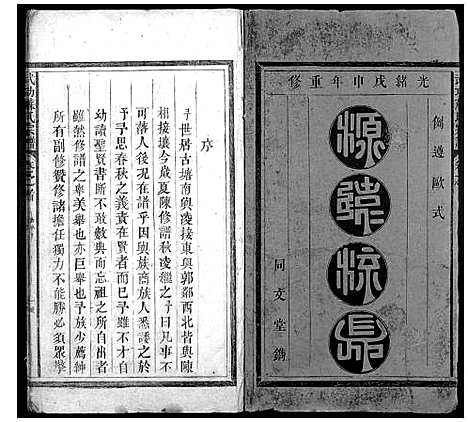 光緒戊申年重修
倣遵歐式
源遠流長
同文堂鐫
序
予世居古塘南與凌接東與郭鄰西北皆與陳
相接壤今歲夏陳修譜秋凌繼之予曰凡事不
可落人後況在譜乎因與族商族人悉諉之於
予予思春秋之義責在賢者而已予雖不才自
幼讀聖賢書斷不敢數典而忘祖之所自出者
乎然修譜之舉美舉也亦巨舉也予族少薦紳
所有副修贊修諸擔任獨力不能勝必須眾擎